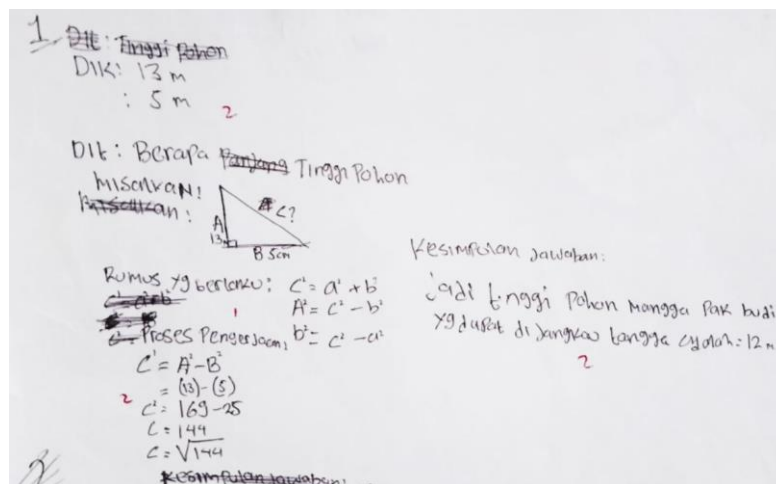 1. Dit: Tinggi Pohon
DIK: 13 m
: 5 m
2
DIt: Berapa Panjang Tinggi Pohon
Misalkan:
Misalkan:
A
13
A C?
B 5cm
Rumus yg berlaku: C² = a² + b²
C² = a² + b
A² = C² - b²
1
b² = C² - a²
Proses Pengerjaan:
C² = A² - B²
= (13) - (5)
2
C² = 169 - 25
C = 144
C = √144
Kesimpulan Jawaban:
Kesimpulan Jawaban:
Jadi tinggi Pohon Mangga Pak budi
yg dapat di Jangkau tangga adalah: 12 m
2
2